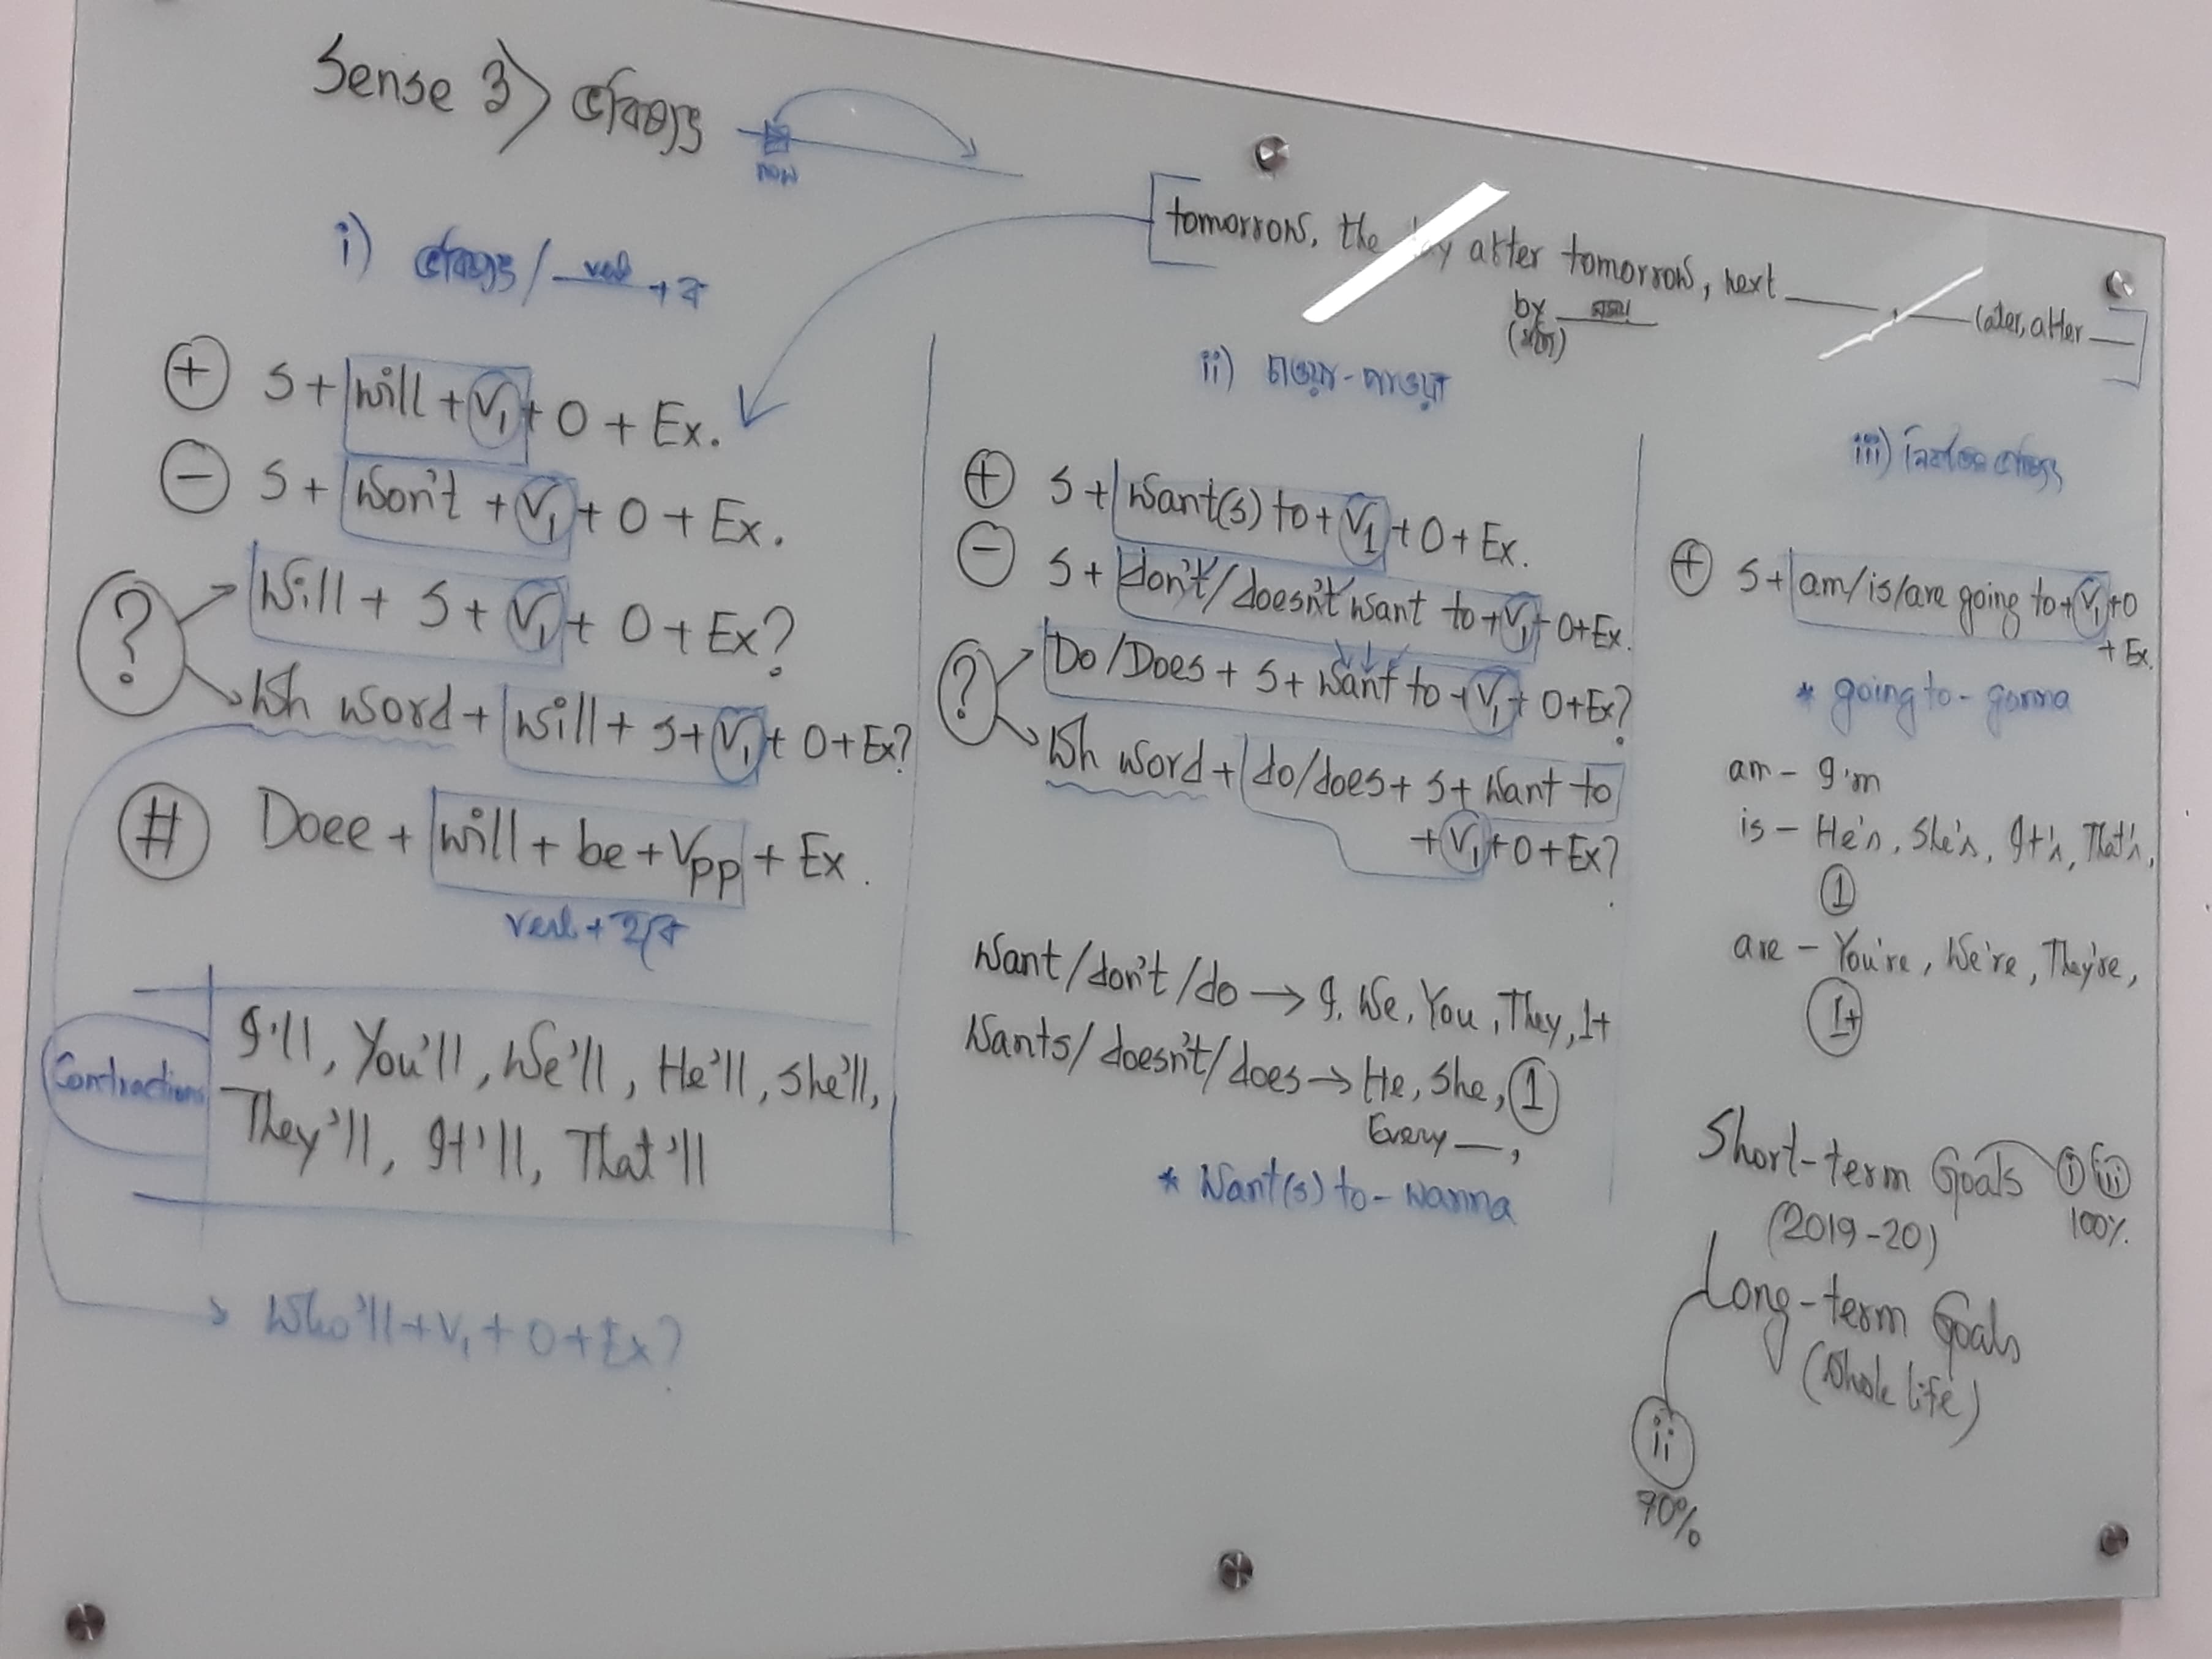 Sense 3> ভবিষ্যৎ
now
[tomorrow, the day after tomorrow, next ____, ____ later, after ___]
by সময়
(মধ্যে)
i) ভবিষ্যৎ / verb + ব
(+) S + will + V₁ + O + Ex.
(-) S + won't + V₁ + O + Ex.
(?) Will + S + V₁ + O + Ex?
Wh word + will + S + V₁ + O + Ex?
(#) Doee + will + be + Vpp + Ex.
verb + হবে
Contractions
I'll, You'll, We'll, He'll, She'll,
They'll, It'll, That'll
Who'll + V₁ + O + Ex?
ii) চাওয়া-পাওয়া
(+) S + want(s) to + V₁ + O + Ex.
(-) S + don't/doesn't want to + V₁ + O + Ex.
(?) Do/Does + S + want to + V₁ + O + Ex?
Wh word + do/does + S + want to
+ V₁ + O + Ex?
Want/don't/do → I, We, You, They, 1+
Wants/doesn't/does → He, She, 1
Every __,
* Want(s) to - wanna
iii) ভবিষ্যৎ
(+) S + am/is/are going to + V₁ + O
+ Ex.
* going to - gonna
am - I'm
is - He's, She's, It's, That's,
1
are - You're, We're, They're,
1+
Short-term Goals i ii
(2019-20) 100%
Long-term Goals
(Whole life)
ii
70%